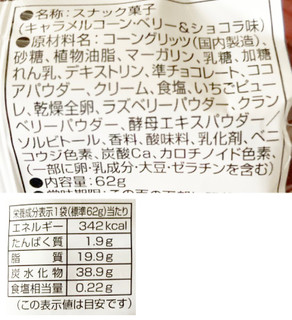 ●名称:スナック菓子
(キャラメルコーン・ベリー&ショコラ味)
●原材料名:コーングリッツ(国内製造)、
砂糖、植物油脂、マーガリン、乳糖、加糖
れん乳、デキストリン、準チョコレート、ココ
アパウダー、クリーム、食塩、いちごピュー
レ、乾燥全卵、ラズベリーパウダー、クラン
ベリーパウダー、酵母エキスパウダー/
ソルビトール、香料、酸味料、乳化剤、ベニ
コウジ色素、炭酸Ca、カロチノイド色素、
(一部に卵・乳成分・大豆・ゼラチンを含む)
●内容量:62g
栄養成分表示1袋(標準62g)当たり
エネルギー 342kcal
たんぱく質 1.9g
脂質 19.9g
炭水化物 38.9g
食塩相当量 0.22g
(この表示値は目安です)